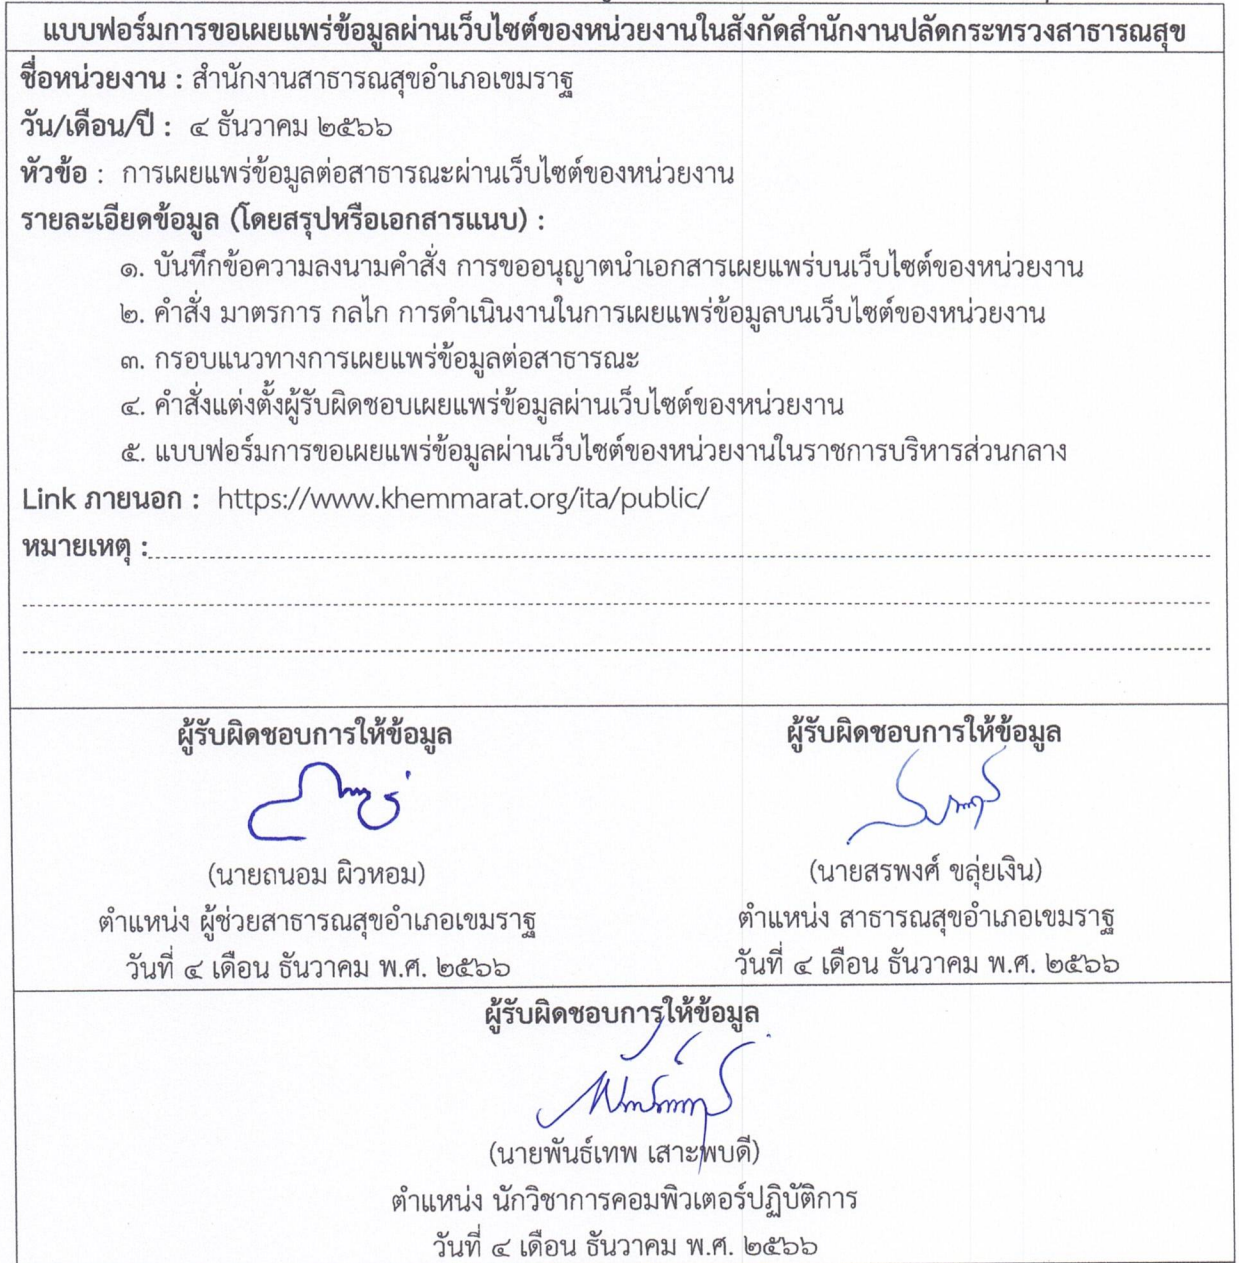 แบบฟอร์มการขอเผยแพร่ข้อมูลผ่านเว็บไซต์ของหน่วยงานในสังกัดสำนักงานปลัดกระทรวงสาธารณสุข
ชื่อหน่วยงาน : สำนักงานสาธารณสุขอำเภอเขมราฐ
วัน/เดือน/ปี : ๔ ธันวาคม ๒๕๖๖
หัวข้อ : การเผยแพร่ข้อมูลต่อสาธารณะผ่านเว็บไซต์ของหน่วยงาน
รายละเอียดข้อมูล (โดยสรุปหรือเอกสารแนบ) :
๑. บันทึกข้อความลงนามคำสั่ง การขออนุญาตนำเอกสารเผยแพร่บนเว็บไซต์ของหน่วยงาน
๒. คำสั่ง มาตรการ กลไก การดำเนินงานในการเผยแพร่ข้อมูลบนเว็บไซต์ของหน่วยงาน
๓. กรอบแนวทางการเผยแพร่ข้อมูลต่อสาธารณะ
๔. คำสั่งแต่งตั้งผู้รับผิดชอบเผยแพร่ข้อมูลผ่านเว็บไซต์ของหน่วยงาน
๕. แบบฟอร์มการขอเผยแพร่ข้อมูลผ่านเว็บไซต์ของหน่วยงานในราชการบริหารส่วนกลาง
Link ภายนอก : https://www.khemmarat.org/ita/public/
หมายเหตุ :
ผู้รับผิดชอบการให้ข้อมูล
(นายถนอม ผิวหอม)
ตำแหน่ง ผู้ช่วยสาธารณสุขอำเภอเขมราฐ
วันที่ ๔ เดือน ธันวาคม พ.ศ. ๒๕๖๖
ผู้รับผิดชอบการให้ข้อมูล
(นายสรพงศ์ ขลุ่ยเงิน)
ตำแหน่ง สาธารณสุขอำเภอเขมราฐ
วันที่ ๔ เดือน ธันวาคม พ.ศ. ๒๕๖๖
ผู้รับผิดชอบการให้ข้อมูล
(นายพันธ์เทพ เสาะพบดี)
ตำแหน่ง นักวิชาการคอมพิวเตอร์ปฏิบัติการ
วันที่ ๔ เดือน ธันวาคม พ.ศ. ๒๕๖๖